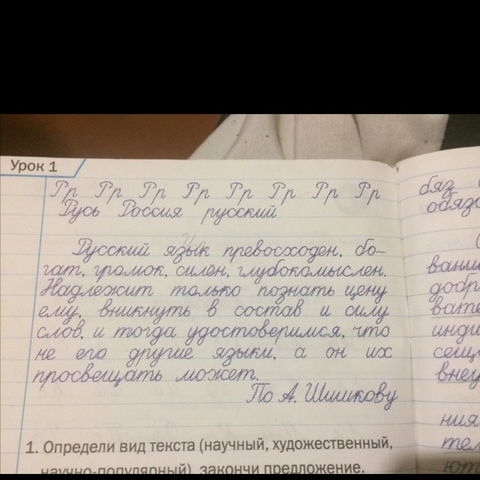 Урок 1
Рр Рр Рр Рр Рр Рр Рр Рр
Русь Россия русский
Русский язык превосходен, бо-
гат, громок, силён, глубокомыслен.
Надлежит только познать цену
ему, вникнуть в состав и силу
слов, и тогда удостоверимся, что
не его другие языки, а он их
просвещать может.
По А. Шишкову
1. Определи вид текста (научный, художественный,
научно-популярный), закончи предложение.